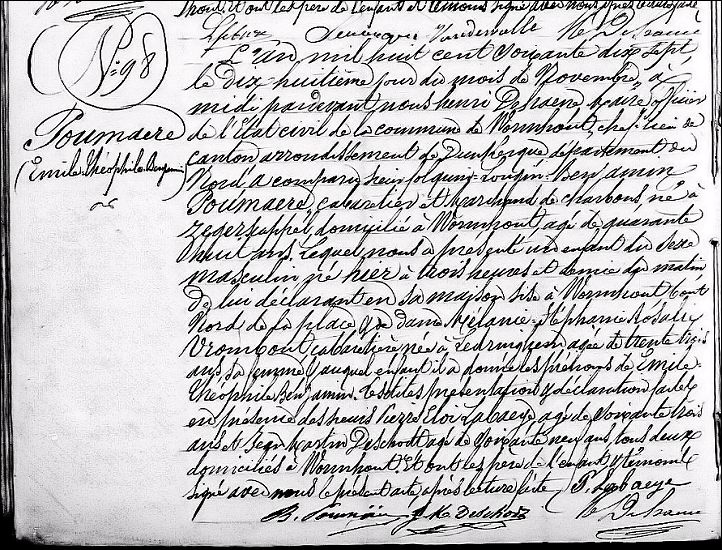 père de l'enfant et témoins signé avec nous
Vandewalle
N: 98
L'an mil huit cent soixante dix sept,
le dix-huitième jour du mois de Novembre, à
midi pardevant nous henri Desaene, maire, officier
Poumaere
de l'Etat civil de la commune de Wormhout, chef-lieu de
(Emile Théophile Benjamin)
canton arrondissement de Dunkerque département du
Nord a comparu Benjamin
Poumaere, cabaretier et Marchand de charbons né à
Zegerscappel, domicilié à Wormhout, agé de quarante
huit ans, Lequel nous a présenté un enfant du sexe
masculin né hier à trois heures et demie du matin
de lui déclarant en sa maison sise à Wormhout bout
Nord de la place & de dame Mélanie Stéphanie Rosalie
Vrombout cabaretière née à Ledringhem agée de trente trois
ans sa femme & auquel enfant il a donné les prénoms de Emile-
Théophile Benjamin. Lesdites présentation & déclaration faites
en présence des sieurs Pierre Eloi Labaeye agé de soixante trois
ans et Jean Martin Deschodt agé de soixante neuf ans, tous deux
domiciliés à Wormhout. Et ont les père de l'enfant & témoins
signé avec nous le présent acte après lecture faite P. Labaeye
B. Poumaere Deschodt